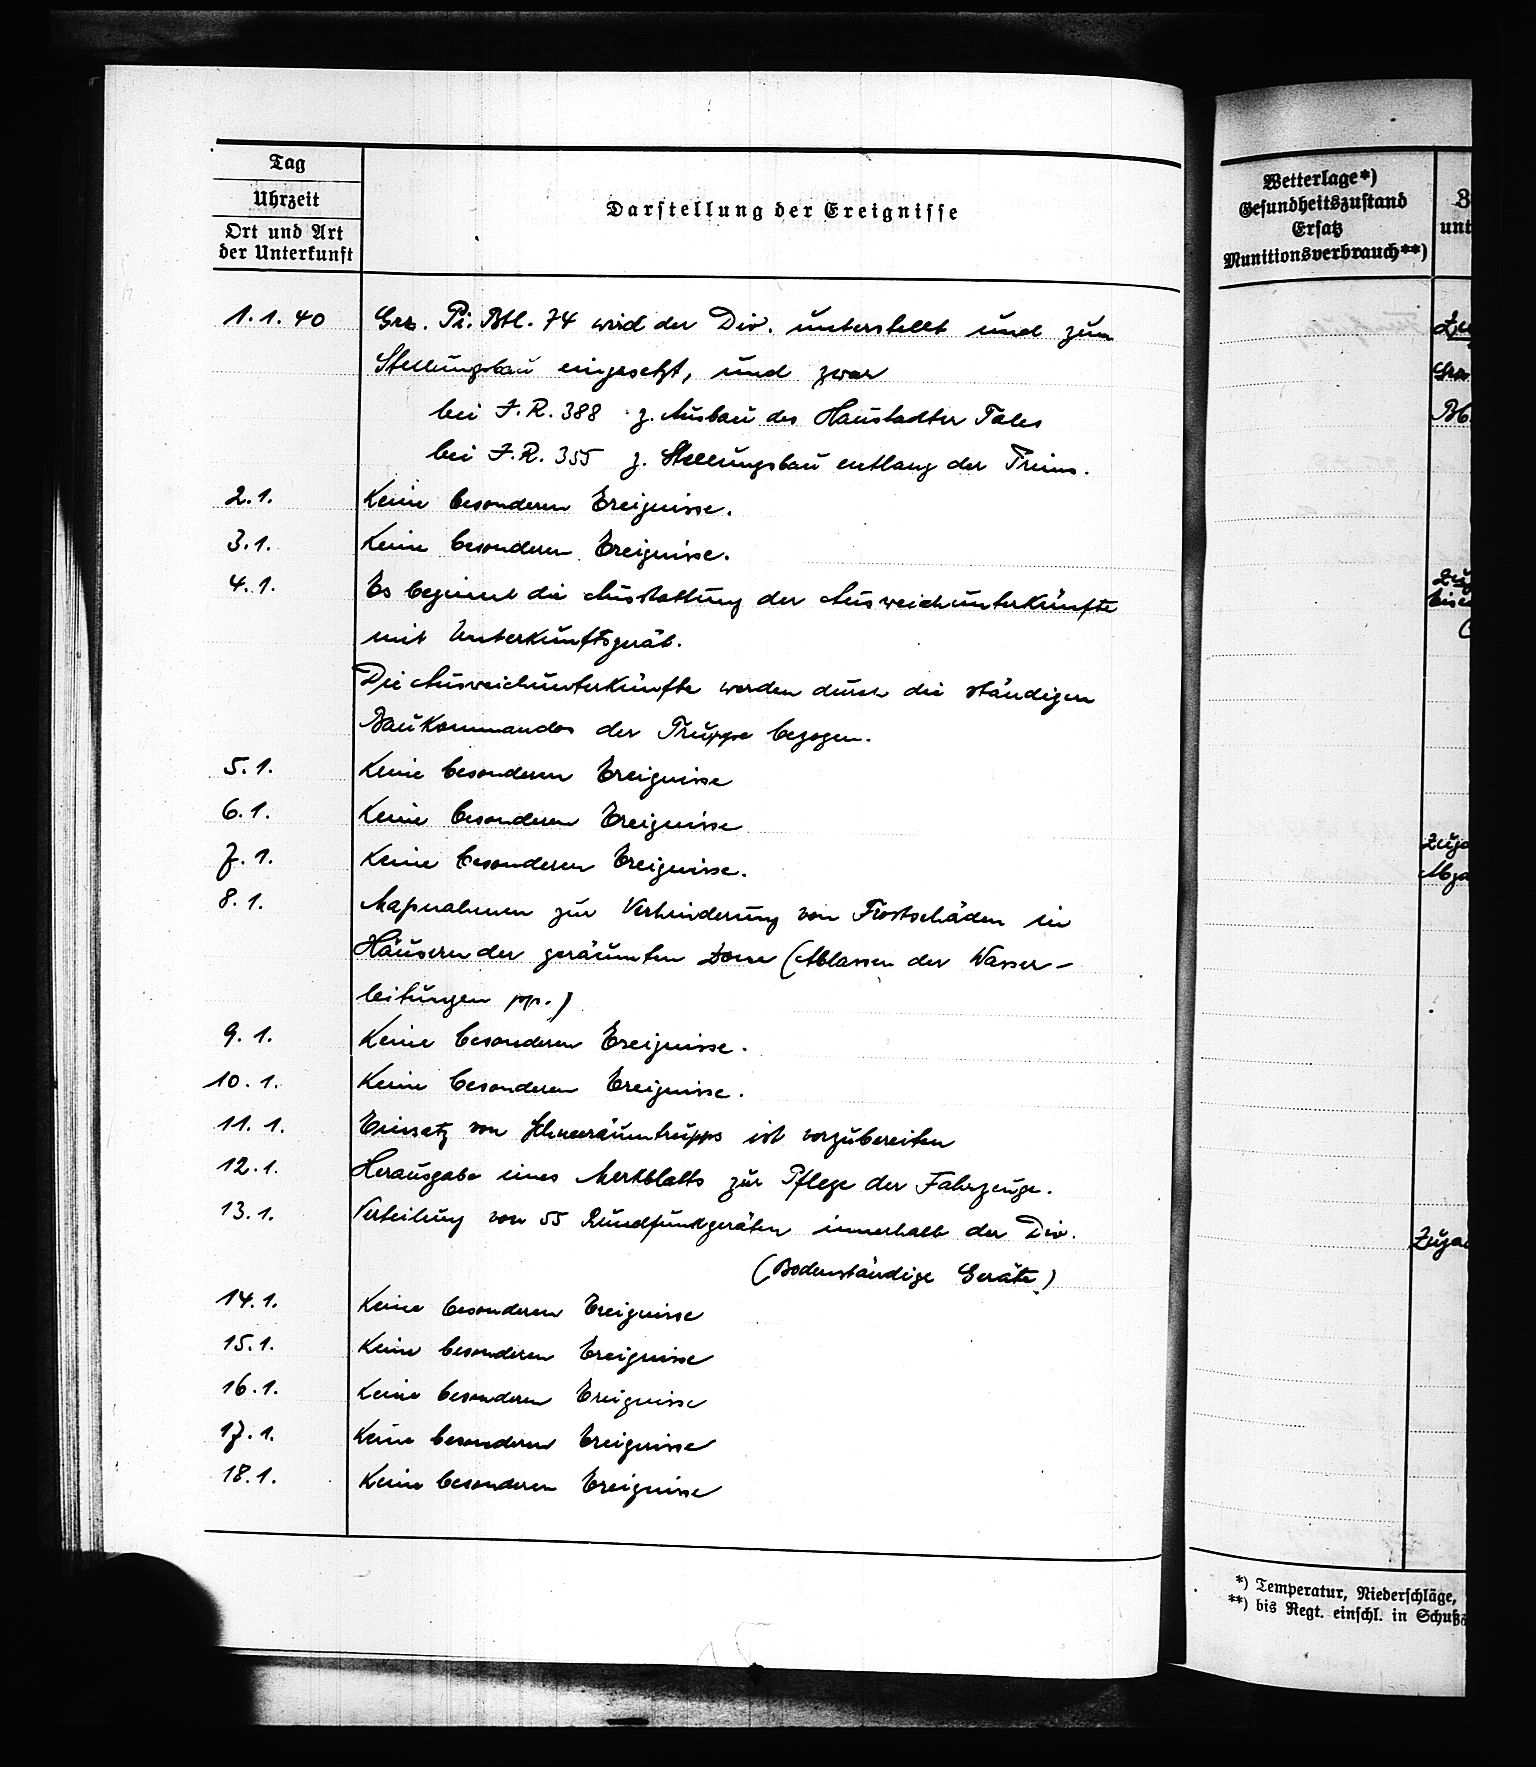 Tag
Uhrzeit
Ort und Art
der Unterkunft
Darstellung der Ereignisse
Wetterlage*)
Gesundheitszustand
Ersatz
Munitionsverbrauch**)
1.1.40 Grz. Pi. Btl. 74 wird der Div. unterstellt und zum
Stellungsbau eingesetzt, und zwar
bei J.R. 388 z. Ausbau des Haustadter Tales
bei J.R. 355 z. Stellungsbau entlang der Prims.
2.1. Keine besonderen Ereignisse.
3.1. Keine besonderen Ereignisse.
4.1. Es beginnt die Ausstattung der Ausweichunterkünfte
mit Unterkunftsgerät.
Die Ausweichunterkünfte werden durch die ständigen
Baukommandos der Truppe bezogen.
5.1. Keine besonderen Ereignisse
6.1. Keine besonderen Ereignisse
7.1. Keine besonderen Ereignisse.
8.1. Maßnahmen zur Verhinderung von Frostschäden in
Häusern der geräumten Zone (Ablassen der Wasser-
leitungen pp.)
9.1. Keine besonderen Ereignisse.
10.1. Keine besonderen Ereignisse.
11.1. Einsatz von Schneeräumtrupps ist vorzubereiten
12.1. Herausgabe eines Merkblatts zur Pflege der Fahrzeuge.
13.1. Verteilung von 55 Rundfunkgeräten innerhalb der Div.
(Bodenständige Geräte)
14.1. Keine besonderen Ereignisse
15.1. Keine besonderen Ereignisse
16.1. Keine besonderen Ereignisse
17.1. Keine besonderen Ereignisse
18.1. Keine besonderen Ereignisse
*) Temperatur, Niederschläge,
**) bis Regt. einschl. in